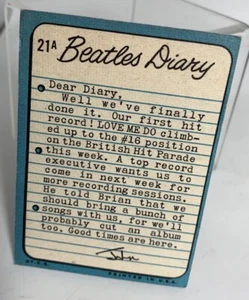 21A Beatles Diary
Dear Diary,
Well we've finally
done it. Our first hit
record LOVE ME DO climb-
ed up to the #16 position
on the British Hit Parade
this week. A top record
executive wants us to
come in next week for
more recording sessions.
He told Brian that we
should bring a bunch of
songs with us, for we'll
probably cut an album
too. Good times are here.
John
PRINTED IN U.S.A.